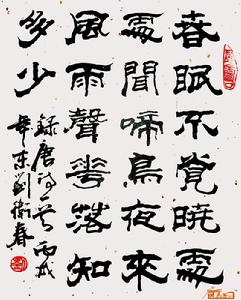 春眠不覺曉處
處聞啼鳥夜來
風雨聲花落知
多少
録唐詩一首丙戌
年劉衛春